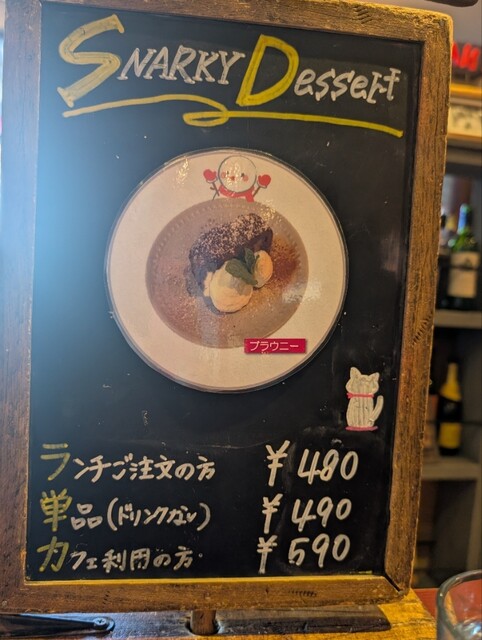 SNARKY Dessert
ブラウニー
ランチご注文の方 ¥480
単品(ドリンクない) ¥490
カフェ利用の方 ¥590